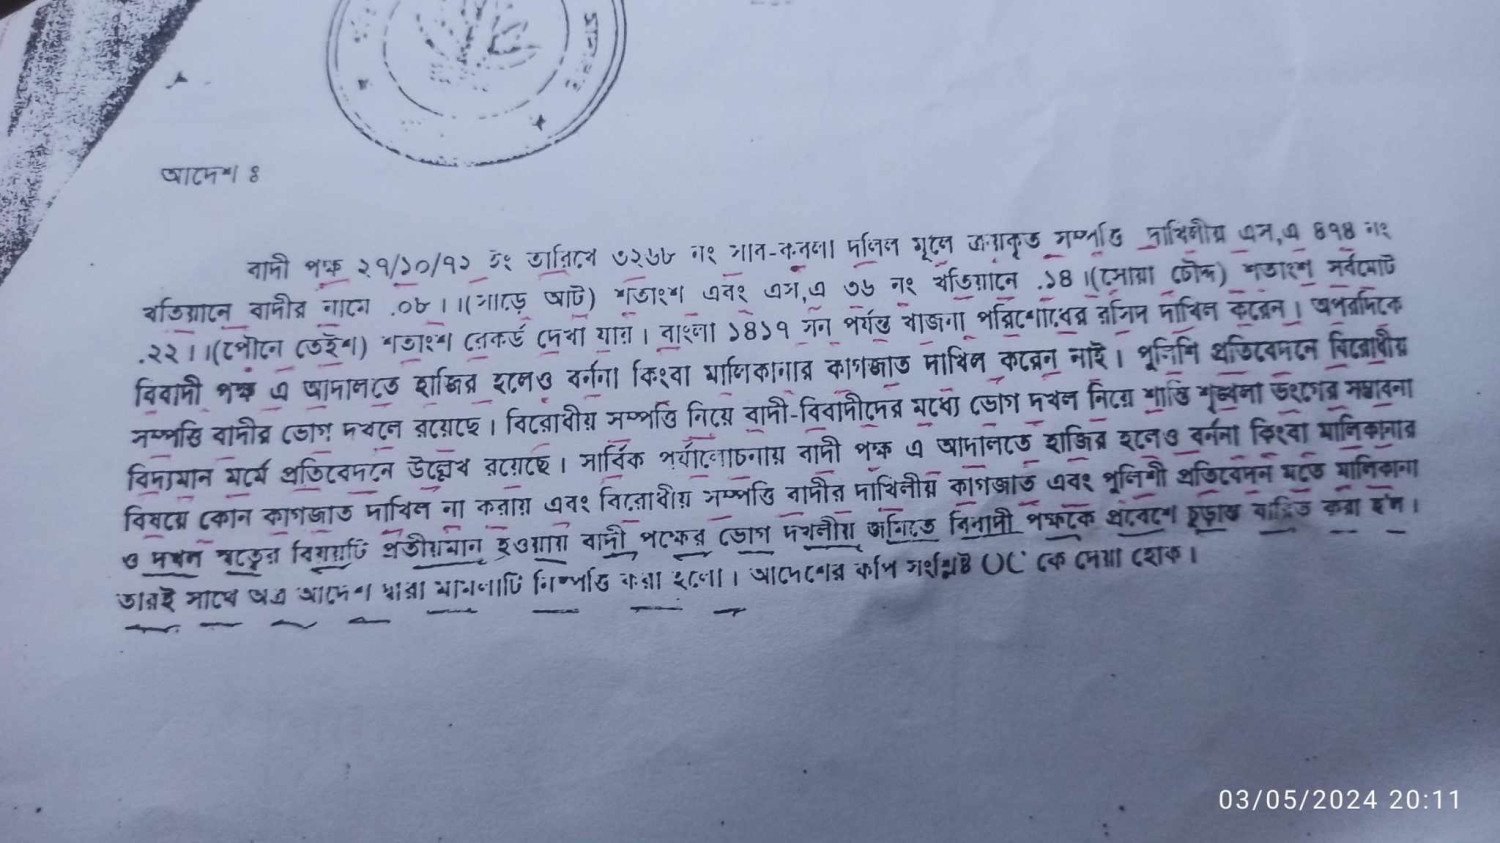 আদেশ ঃ
বাদী পক্ষ ২৭/১০/৭২ ইং তারিখে ৩২৬৮ নং সাব-কবলা দলিল মূলে ক্রয়কৃত সম্পত্তি দাখিলীয় এস,এ ৪৭৪ নং
খতিয়ানে বাদীর নামে .০৮।।(সাড়ে আট) শতাংশ এবং এস,এ ৩৬ নং খতিয়ানে .১৪।(সোয়া চৌদ্দ) শতাংশ সর্বমোট
.২২।।(পৌনে তেইশ) শতাংশ রেকর্ড দেখা যায়। বাংলা ১৪১৭ সন পর্যন্ত খাজনা পরিশোধের রসিদ দাখিল করেন। অপরদিকে
বিবাদী পক্ষ এ আদালতে হাজির হলেও বর্ননা কিংবা মালিকানার কাগজাত দাখিল করেন নাই। পুলিশি প্রতিবেদনে বিরোধীয়
সম্পত্তি বাদীর ভোগ দখলে রয়েছে। বিরোধীয় সম্পত্তি নিয়ে বাদী-বিবাদীদের মধ্যে ভোগ দখল নিয়ে শান্তি শৃঙ্খলা ভংগের সম্ভাবনা
বিদ্যমান মর্মে প্রতিবেদনে উল্লেখ রয়েছে। সার্বিক পর্যালোচনায় বাদী পক্ষ এ আদালতে হাজির হলেও বর্ননা কিংবা মালিকানার
বিষয়ে কোন কাগজাত দাখিল না করায় এবং বিরোধীয় সম্পত্তি বাদীর দাখিলীয় কাগজাত এবং পুলিশী প্রতিবেদন মতে মালিকানা
ও দখল স্বত্বের বিষয়টি প্রতীয়মান হওয়ায় বাদী পক্ষের ভোগ দখলীয় জমিতে বিবাদী পক্ষকে প্রবেশে চূড়ান্ত বারিত করা হ'ল।
তারই সাথে অত্র আদেশ দ্বারা মামলাটি নিষ্পত্তি করা হলো। আদেশের কপি সংশ্লিষ্ট OC কে দেয়া হোক।
03/05/2024 20:11